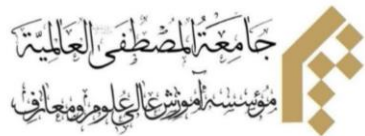 جامعة المصطفی العالمیّة
مؤسسه آموزش عالی علوم و معارف